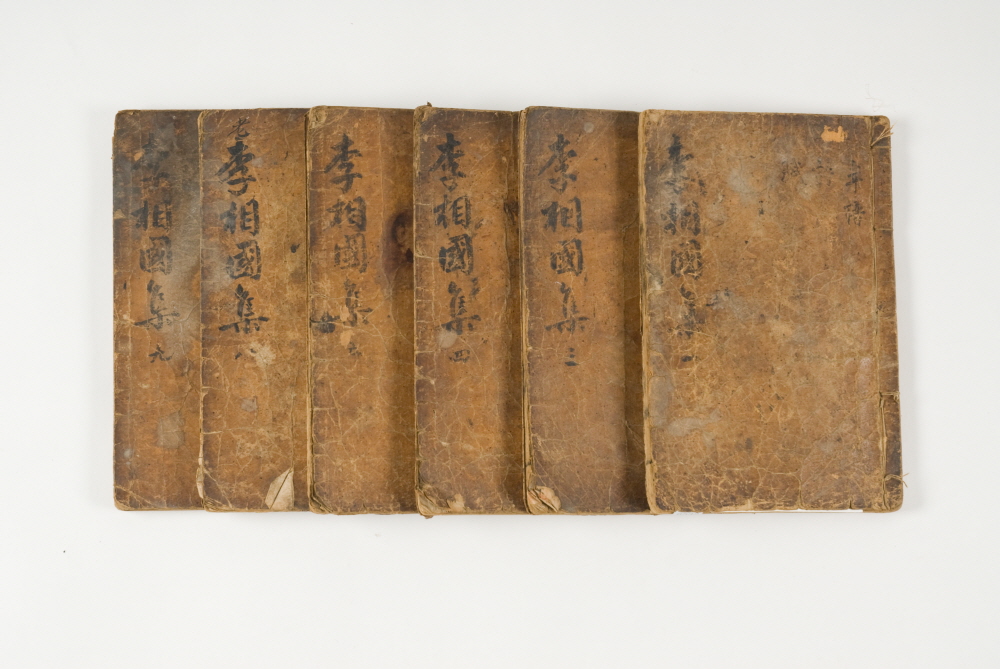 李相國集一
李相國集三
李相國集四
李相國集
李相國集八
李相國集九